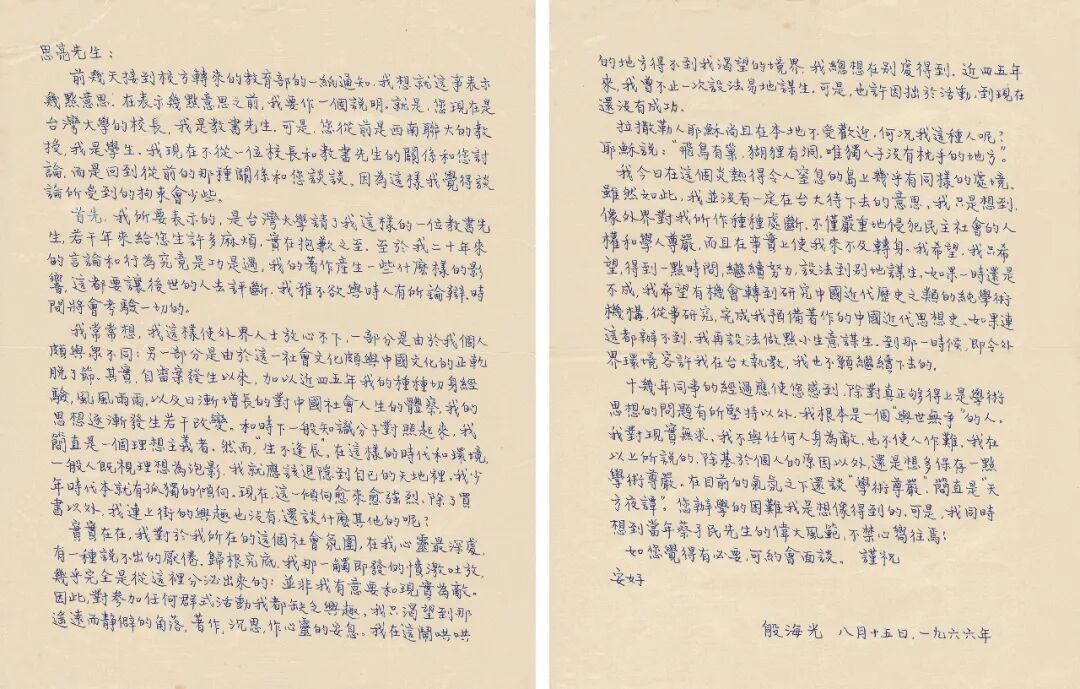 思亮先生：
前幾天接到校方轉來的教育部的一紙通知，我想就這事表示
幾點意思。在表示幾點意思之前，我要作一個說明。就是，您現在是
台灣大學的校長，我是教書先生。可是，您從前是西南聯大的教
授，我是學生。我現在不從一位校長和教書先生的關係和您討
論，而是回到從前的那種關係和您談談，因為這樣我覺得談
論所受到的拘束會少些。
首先，我所要表示的，是台灣大學請了我這樣的一位教書先
生，若干年來給您生許多麻煩，實在抱歉之至。至於我二十年來
的言論和行為究竟是功是過，我的著作產生一些什麼樣的影
響，這都要讓後世的人去評斷，我雅不欲與時人有所論辯，時
間將會考驗一切的。
我常常想，我這樣使外界人士放心不下，一部分是由於我個人
頗與眾不同；另一部分是由於這一社會文化頗與中國文化的正軌
脫了節。其實，自雷案發生以來，加以近四五年我的種種切身經
驗，風風雨雨，以及日漸增長的對中國社會人生的體察，我的
思想逐漸發生若干改變。和時下一般知識分子對照起來，我
簡直是一個理想主義者。然而，“生不逢辰”，在這樣的時代和環境，
一般人既視理想為泡影，我就應該退隱到自己的天地裡。我少
年時代本就有孤獨的傾向。現在，這一傾向愈來愈強烈。除了買
書以外，我連上街的興趣也沒有，還談什麼其他的呢？
實實在在，我對於我所在的這個社會氛圍，在我心靈最深處，
有一種說不出的厭倦。歸根究底，我那一觸即發的憤激吐放，
幾乎完全是從這裡分泌出來的：並非我有意要和現實為敵。
因此，對參加任何群式活動我都缺乏興趣。我只渴望到那
遙遠而靜僻的角落，著作，沉思，作心靈的安息。我在這鬧哄哄
的地方得不到我渴望的境界，我總想在別處得到。近四五年
來，我曾不止一次設法易地謀生，可是，也許因拙於活動，到現在
還沒有成功。
拉撒勒人耶穌尚且在本地不受歡迎，何況我這種人呢？
耶穌說：“飛鳥有巢，狐狸有洞，唯獨人子沒有枕手的地方”。
我今日在這個炎熱得令人窒息的島上幾乎有同樣的處境。
雖然如此，我並沒有一定在台大待下去的意思。我只是想到，
像外界對我所作種種處斷，不僅嚴重地侵犯民主社會的人
權和學人尊嚴，而且在事實上使我來不及轉身。我希望，我只希
望，得到一點時間，繼續努力，設法到別地謀生。如果一時還是
不成，我希望有機會轉到研究中國近代歷史之類的純學術
機構，從事研究，完成我預備著作的中國近代思想史。如果連
這都辦不到，我再設法做點小生意謀生。到那一時候，即令外
界環境容許我在台大執教，我也不願繼續下去的。
十幾年同事的經過應使您感到，除對真正夠得上是學術
思想的問題有所堅持以外，我根本是一個“與世無爭”的人。
我對現實無求。我不與任何人身為敵，也不使人作難。我在
以上所說的，除基於個人的原因以外，還是想多保存一點
學術尊嚴。在目前的氣氛之下還談“學術尊嚴”，簡直是“天
方夜譚”。您辦學的困難我是想像得到的，可是，我同時
想到當年蔡子民先生的偉大風範，不禁心嚮往焉！
如您覺得有必要，可約會面談。 謹祝
安好
殷海光 八月十五日，一九六六年